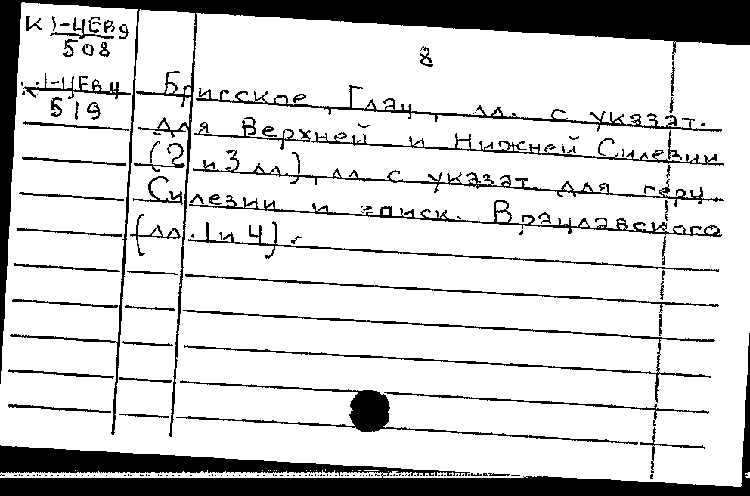 К 1-ЦЕВ9
508
8
К 1-ЦЕВ4
519
Бригское, Глац, лл. с указат.
для Верхней и Нижней Силезии
(2 и 3 лл.), лл. с указат. для герц.
Силезии и еписк. Врацлавского
(лл. 1 и 4).